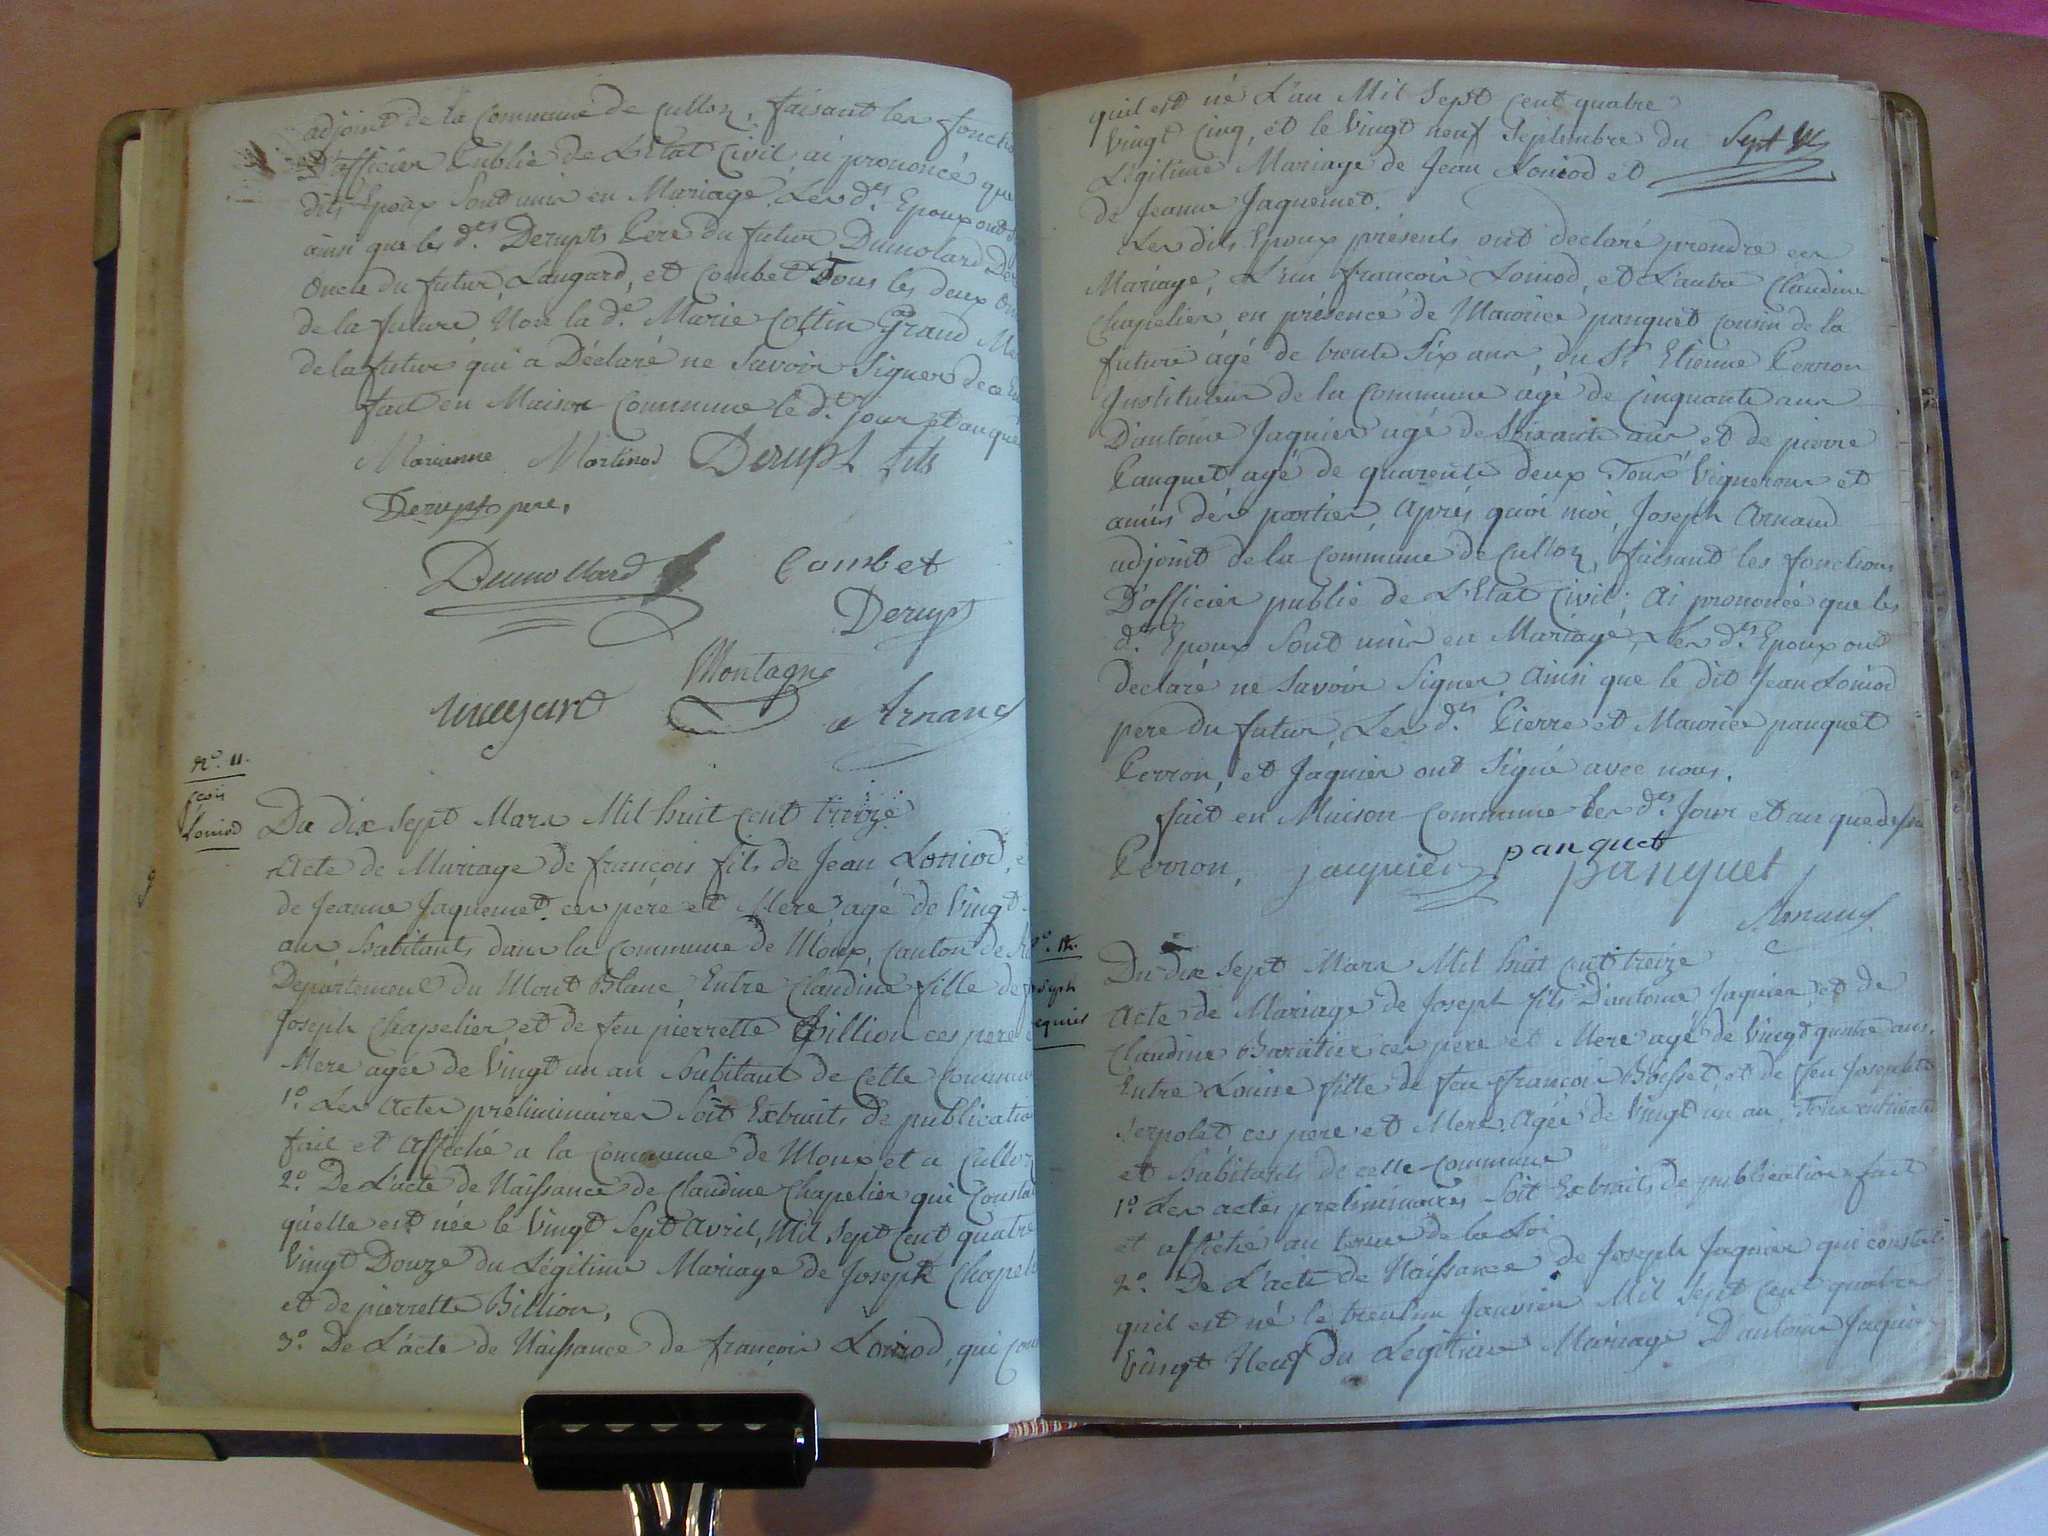 adjoint de la Commune de Culloz, faisant les fonctio
D'officier Public de L'Etat Civil ai prononcé que
dits Epoux Sont unis en Mariage, Les d.es Epoux ont
ainsi que les d.es Derupts Pere du futur Dumolard De
Oncle du futur, Laugard, et Combet Tous les deux On
de la future Non la d.e Marie Cottin Grand Me
de la future qui a Déclaré ne Savoir Signer de ce
fait en Maison Commune le d.t jour et an que
Marianne Martinod Derupt fils
Derupt pere,
Dumollard Combet
Derupt
Montagne
Arnaud
N.o 11.
çois
Loniod
Du dix Sept Mars Mil huit Cent treize
Acte de Mariage de françois fils de Jean Loniod, e
de Jeanne Jaquemet ces pere et Mere agé de Vingt
ans habitants dans la Commune de Moux, Canton de
Département du Mont Blanc, Entre Claudine fille de
Joseph Chapelier et de feu pierrette Billion ces pere
Mere agée de Vingt un an habitant de Cette Commun
1.o Les Actes préliminaires Soit Extraits de publicatio
fait et Affiché a la Commune de Moux et a Culloz
2.o De L'acte de Naissance de Claudine Chapelier qui Consta
quelle est née le Vingt Sept Avril, Mil Sept Cent quatre
Vingt Douze du Légitime Mariage de Joseph Chapel
et de pierrette Billion,
3.o De L'acte de Naissance de françois Loniod, qui Con
quil est né L'an Mil Sept Cent quatre
Vingt Cinq, et le Vingt neuf Septembre du Sept
Légitime Mariage de Jean Loniod et
de Jeanne Jaquemet.
Les dits Epoux présents ont declaré prendre en
Mariage, L'un françois Loniod, et L'autre Claudine
Chapelier en présence de Maurice panquet Cousin de la
future âgé de trente Six ans, du S.r Etienne Perron
Instituteur de la Commune âgé de Cinquante ans
D'antoine Jaquier agé de Soixante ans et de pierre
Panquet agé de quarente deux Tous Vignerons et
amis des parties, Après quoi moi, Joseph Arnaud
adjoint de la Commune de Culloz, faisant les fonctions
D'officier public de L'Etat Civil; Ai prononcé que les
d.es Epoux Sont unis en Mariage, Les d.es Epoux ont
declaré ne Savoir Signer Ainsi que le dit Jean Loniod
pere du futur, Les d.es Pierre et Maurice panquet
Perron, et Jaquier ont Signé avec nous.
fait en Maison Commune Les d.es Jour et an que dessus
Perron, jaquier panquet panquet
Arnaud
N.o 12.
Joseph
Jaquier
Du dix Sept Mars Mil huit Cent treize
Acte de Mariage de Joseph fils D'antoine Jaquier, et de
Claudine Baratier ces pere et Mere agé de Vingt quatre ans.
Entre Louise fille de feu françois Boisset, et de feu Josephte
Serpolet ces pere et Mere, Agée de Vingt un an Tous
et habitants de cette Commune
1.o Les actes préliminaires Soit Extraits de publication fait
et affiché au terme de la Loi
2.o De L'acte de Naissance de Joseph Jaquier qui constate
quil est né le trent'un Janvier Mil Sept Cent quatre
Vingt Neuf du Légitime Mariage D'antoine Jaquier